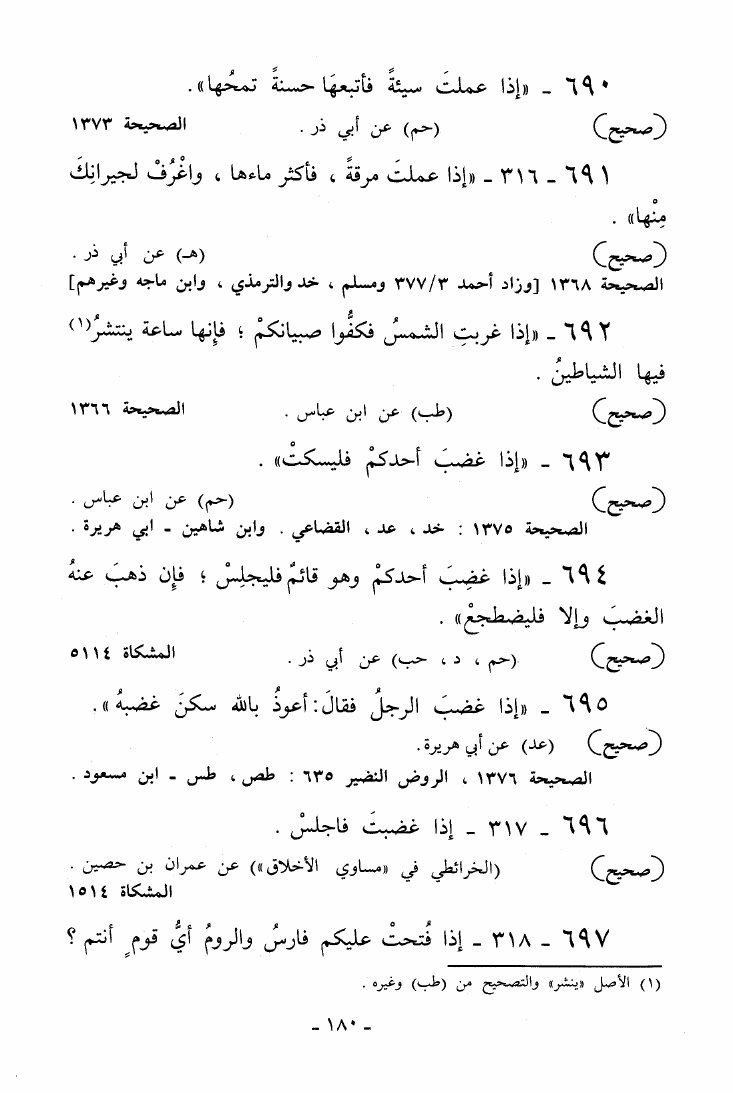 ٦٩٠ - «إذا عملتَ سيئةً فأتبعهَا حسنةً تمحُها».
(صحيح) (حم) عن أبي ذر . الصحيحة ١٣٧٣
٦٩١ - ٣١٦ - «إذا عملتَ مرقةً ، فأكثر ماءها ، واغْرُفْ لجيرانِكَ
مِنْها» .
(صحيح) (هـ) عن أبي ذر .
الصحيحة ١٣٦٨ [وزاد أحمد ٣٧٧/٣ ومسلم ، خد والترمذي ، وابن ماجه وغيرهم]
٦٩٢ - «إذا غربتِ الشمسُ فكفُّوا صبيانكمْ ؛ فإنها ساعة ينتشرُ(١)
فيها الشياطينُ .
(صحيح) (طب) عن ابن عباس . الصحيحة ١٣٦٦
٦٩٣ - «إذا غضبَ أحدكمْ فليسكتْ» .
(صحيح) (حم) عن ابن عباس .
الصحيحة ١٣٧٥ : خد ، عد ، القضاعي . وابن شاهين - ابي هريرة .
٦٩٤ - «إذا غضِبَ أحدكمْ وهو قائمٌ فليجلِسْ ؛ فإن ذهبَ عنهُ
الغضبَ وإلا فليضطجعْ» .
(صحيح) (حم ، د ، حب) عن أبي ذر . المشكاة ٥١١٤
٦٩٥ - «إذا غضبَ الرجلُ فقالَ: أعوذُ بالله سكنَ غضبهُ» .
(صحيح) (عد) عن أبي هريرة.
الصحيحة ١٣٧٦ ، الروض النضير ٦٣٥ : طص ، طس - ابن مسعود .
٦٩٦ - ٣١٧ - إذا غضبتَ فاجلسْ .
(صحيح) (الخرائطي في «مساوي الأخلاق») عن عمران بن حصين .
المشكاة ١٥١٤
٦٩٧ - ٣١٨ - إذا فُتحتْ عليكم فارسُ والرومُ أيُّ قومٍ أنتم ؟
(١) الأصل «ينشر» والتصحيح من (طب) وغيره .
- ١٨٠ -